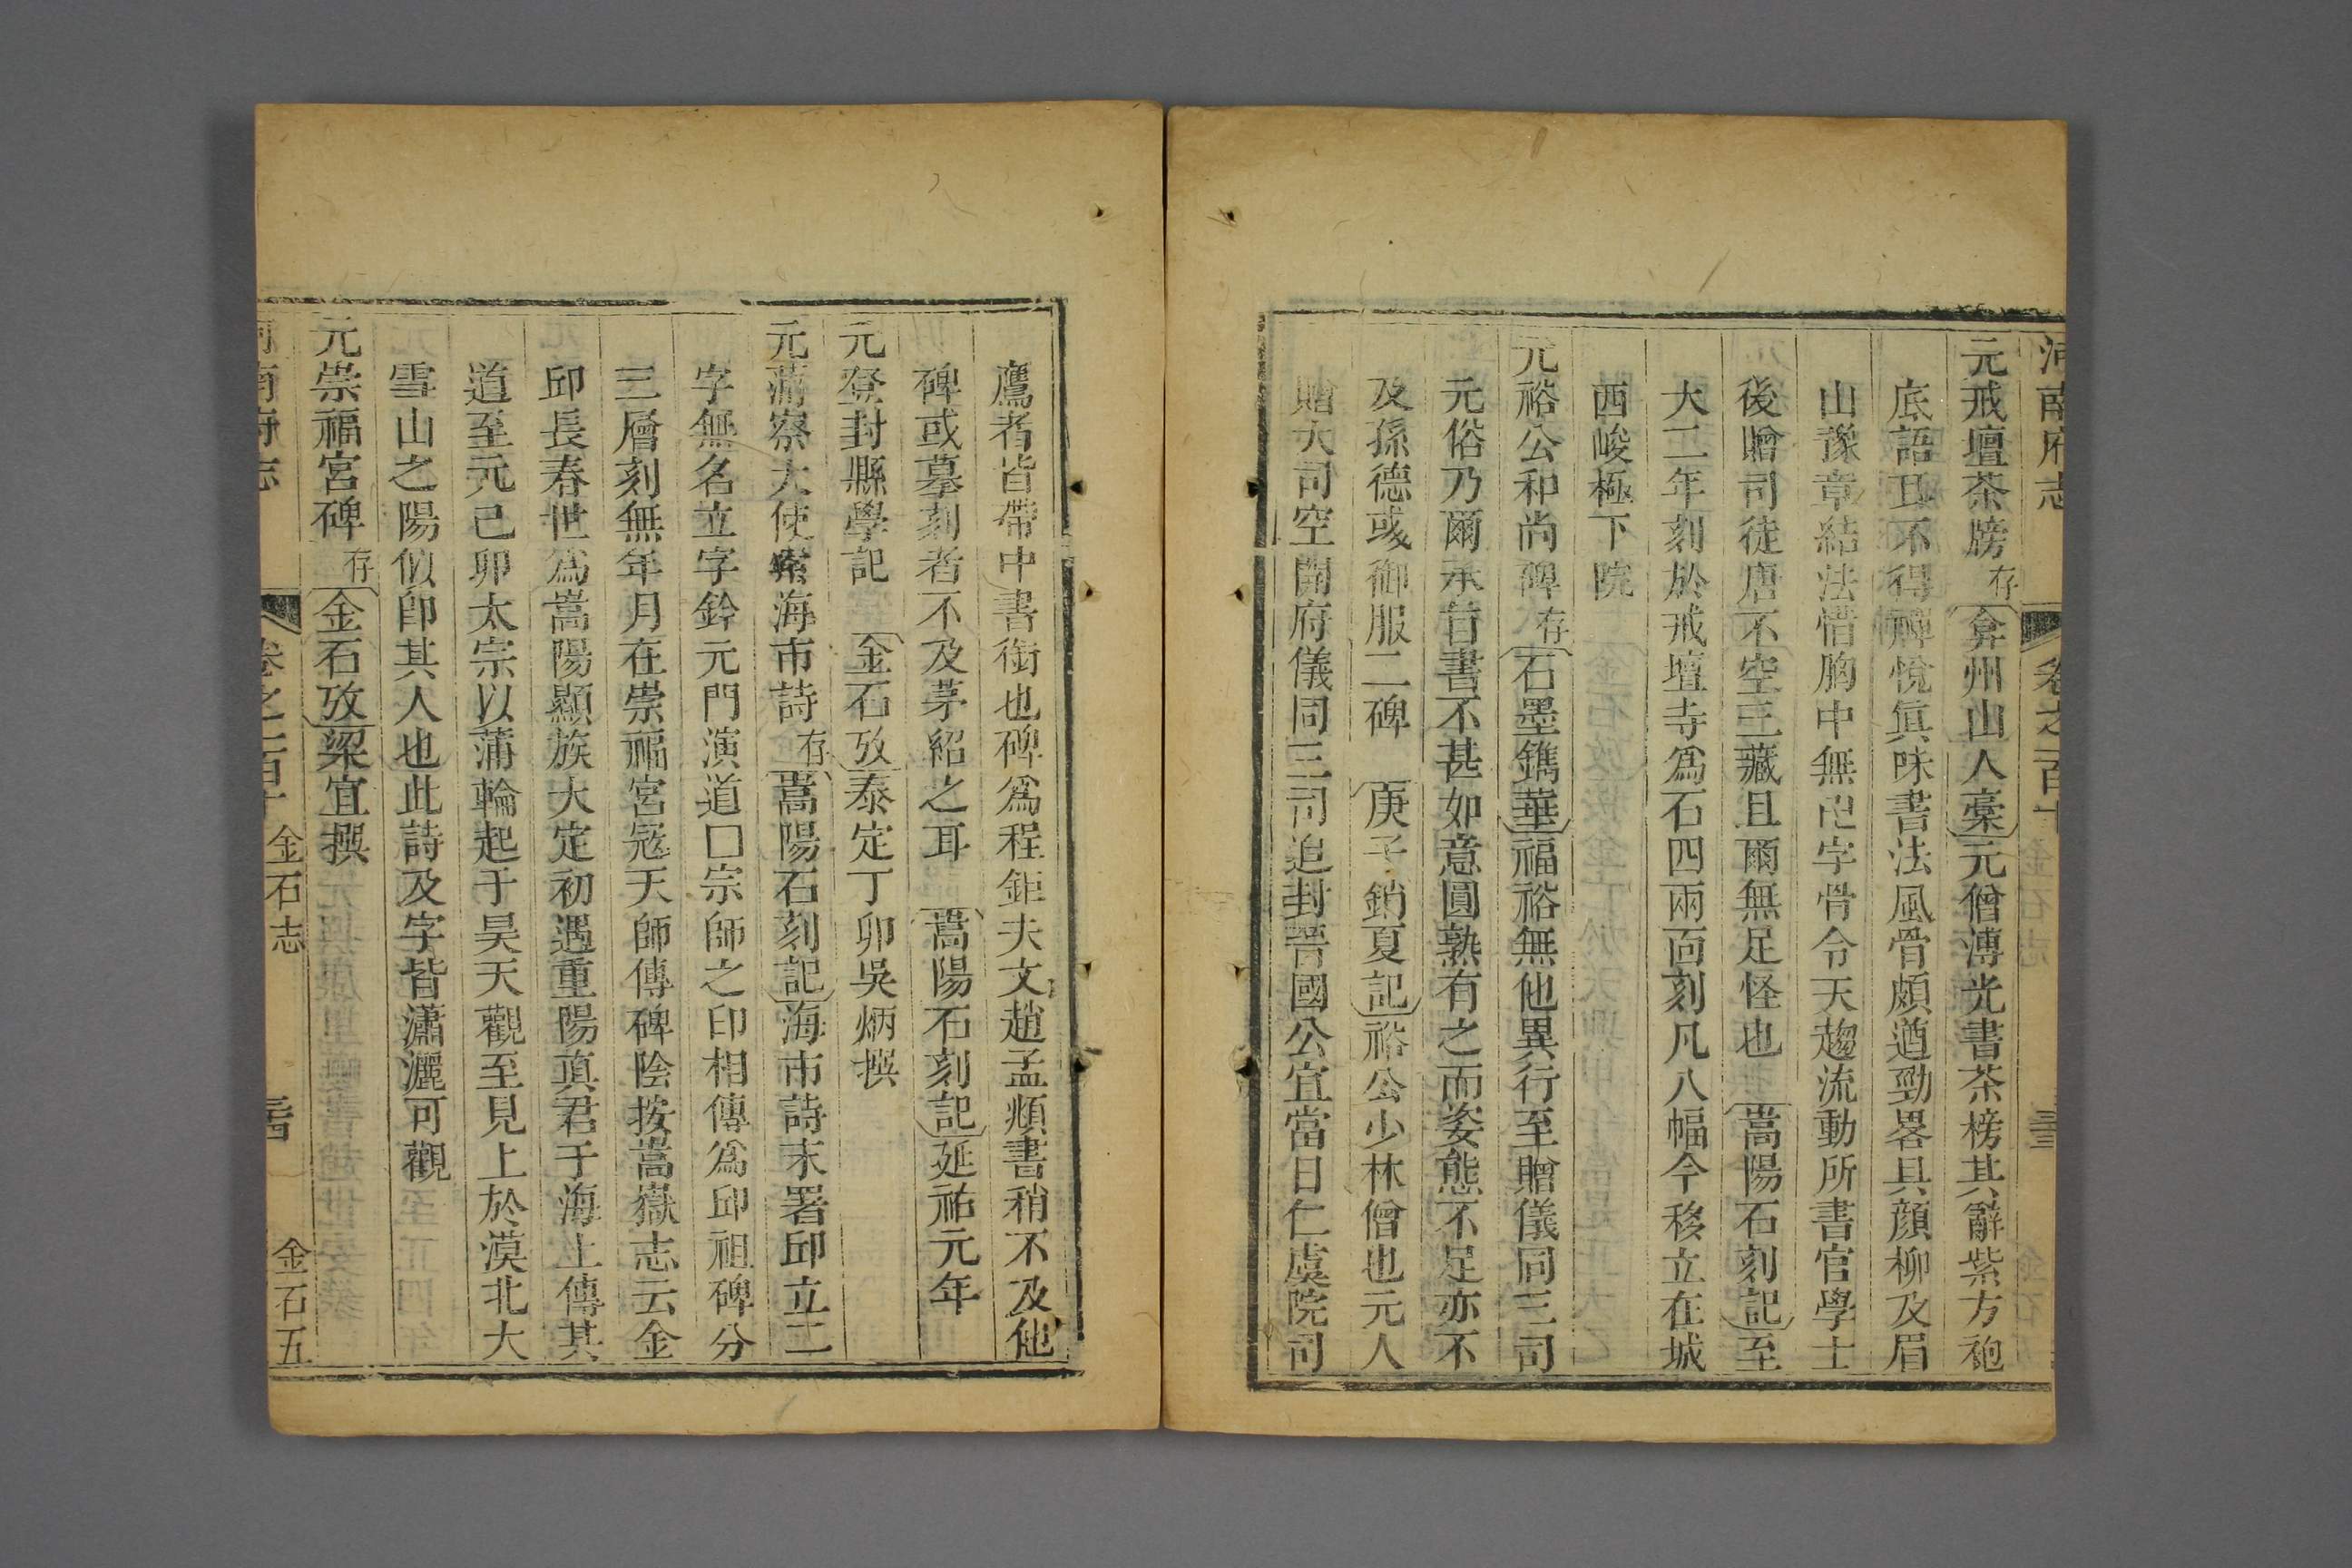 河南府志 卷之一百十 金石志
元戒壇茶牓 存 弇州山人稾元僧溥光書茶榜其辭紫方袍
底語耳不得禪悅眞味書法風骨頗遒勁畧具顏柳及眉
山豫章結法惜胸中無卍字骨令天趣流動所書官學士
後贈司徒唐不空三藏且爾無足怪也 嵩陽石刻記至
大二年刻於戒壇寺爲石四兩面刻凡八幅今移立在城
西峻極下院
元裕公和尚碑 存 石墨鐫華福裕無他異行至贈儀同三司
元俗乃爾承旨書不甚如意圓熟有之而姿態不足亦不
及孫德彧御服二碑 庚子銷夏記裕公少林僧也元人
贈大司空開府儀同三司追封晉國公宜當日仁虞院司
鷹者皆帶中書銜也碑爲程鉅夫文趙孟頫書稍不及他
碑或摹刻者不及茅紹之耳 嵩陽石刻記延祐元年
元登封縣學記 金石攷泰定丁卯吳炳撰
元蒲察大使築海市詩 存 嵩陽石刻記海市詩末署邱立二
字無名立字鈐元門演道囗宗師之印相傳爲邱祖碑分
三層刻無年月在崇福宮寇天師傳碑陰按嵩嶽志云金
邱長春世爲嵩陽顯族大定初遇重陽眞君于海上傳其
道至元己卯太宗以蒲輪起于昊天觀至見上於漠北大
雪山之陽似卽其人也此詩及字皆瀟灑可觀
元崇福宮碑 存 金石攷梁宜撰
河南府志 卷之一百十 金石志 金石五